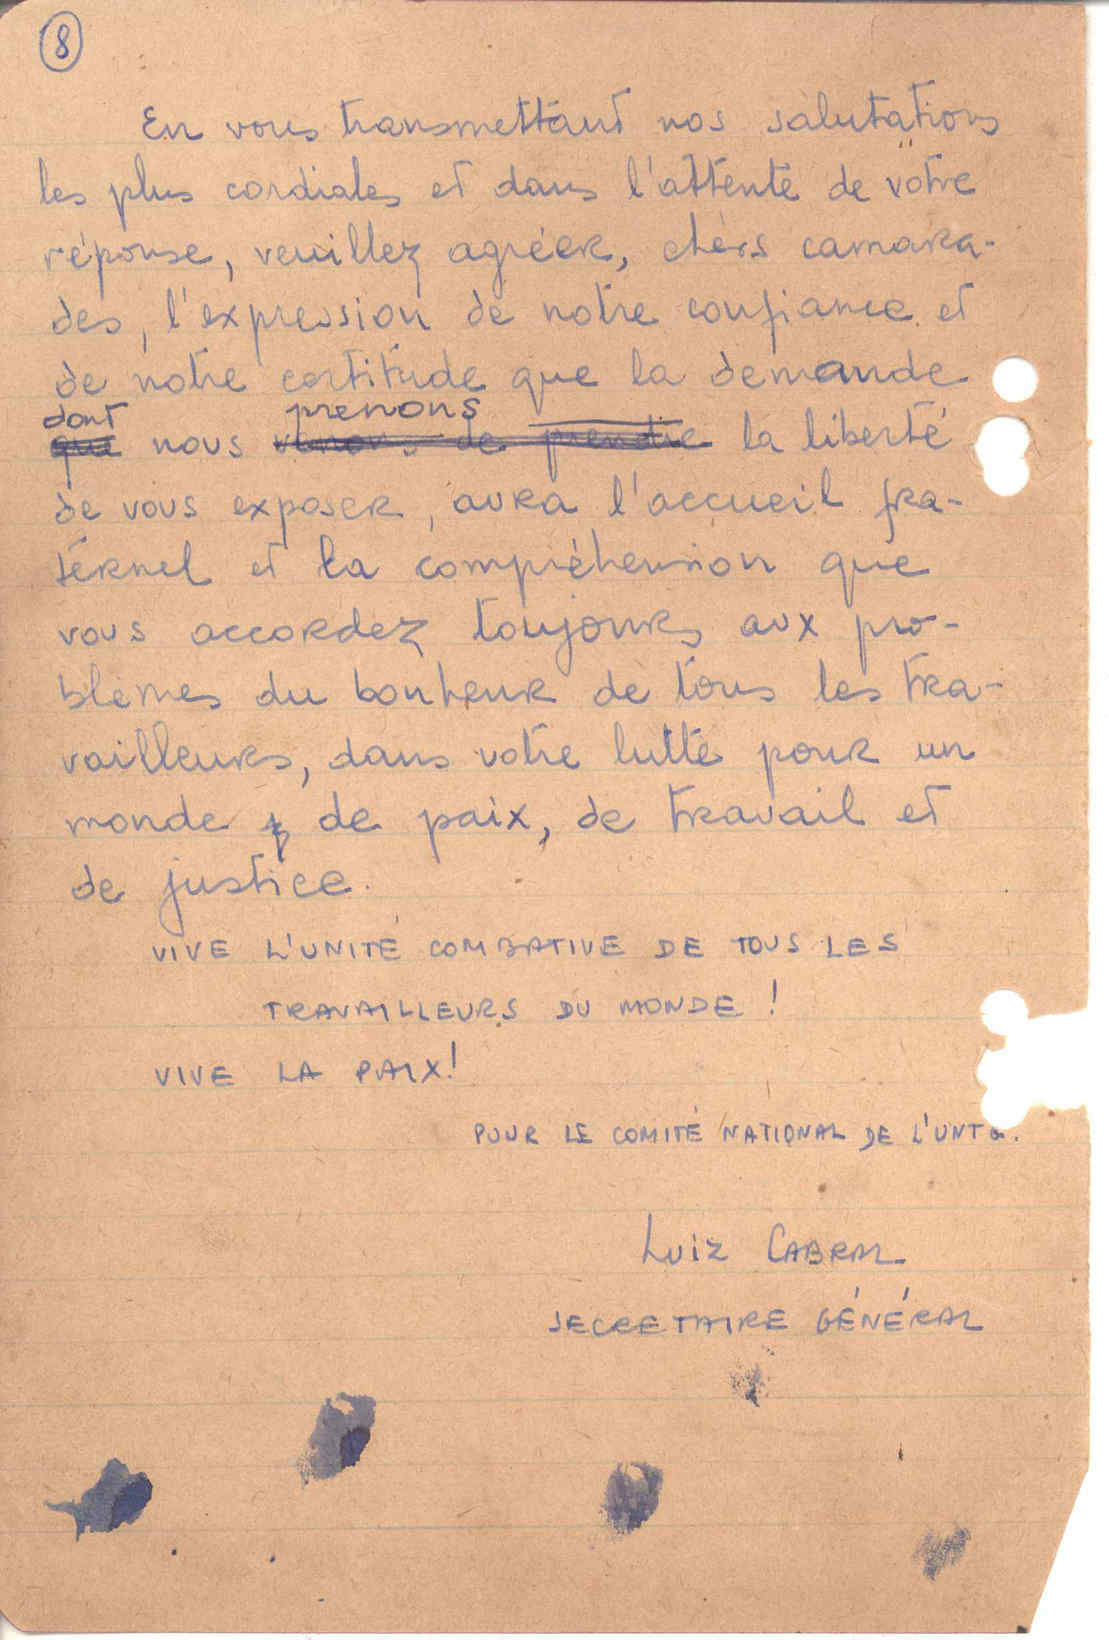 8
En vous transmettant nos salutations
les plus cordiales et dans l'attente de votre
réponse, veuillez agréer, chers camara-
des, l'expression de notre confiance et
de notre certitude que la demande
dont prenons
que nous venons de prendre la liberté
de vous exposer, aura l'accueil fra-
ternel et la compréhension que
vous accordez toujours aux pro-
blèmes du bonheur de tous les tra-
vailleurs, dans votre lutte pour un
monde de paix, de travail et
de justice.
VIVE L'UNITÉ COMBATIVE DE TOUS LES
TRAVAILLEURS DU MONDE !
VIVE LA PAIX!
POUR LE COMITÉ NATIONAL DE L'UNTG.
LUIZ CABRAL
SECRETAIRE GÉNÉRAL